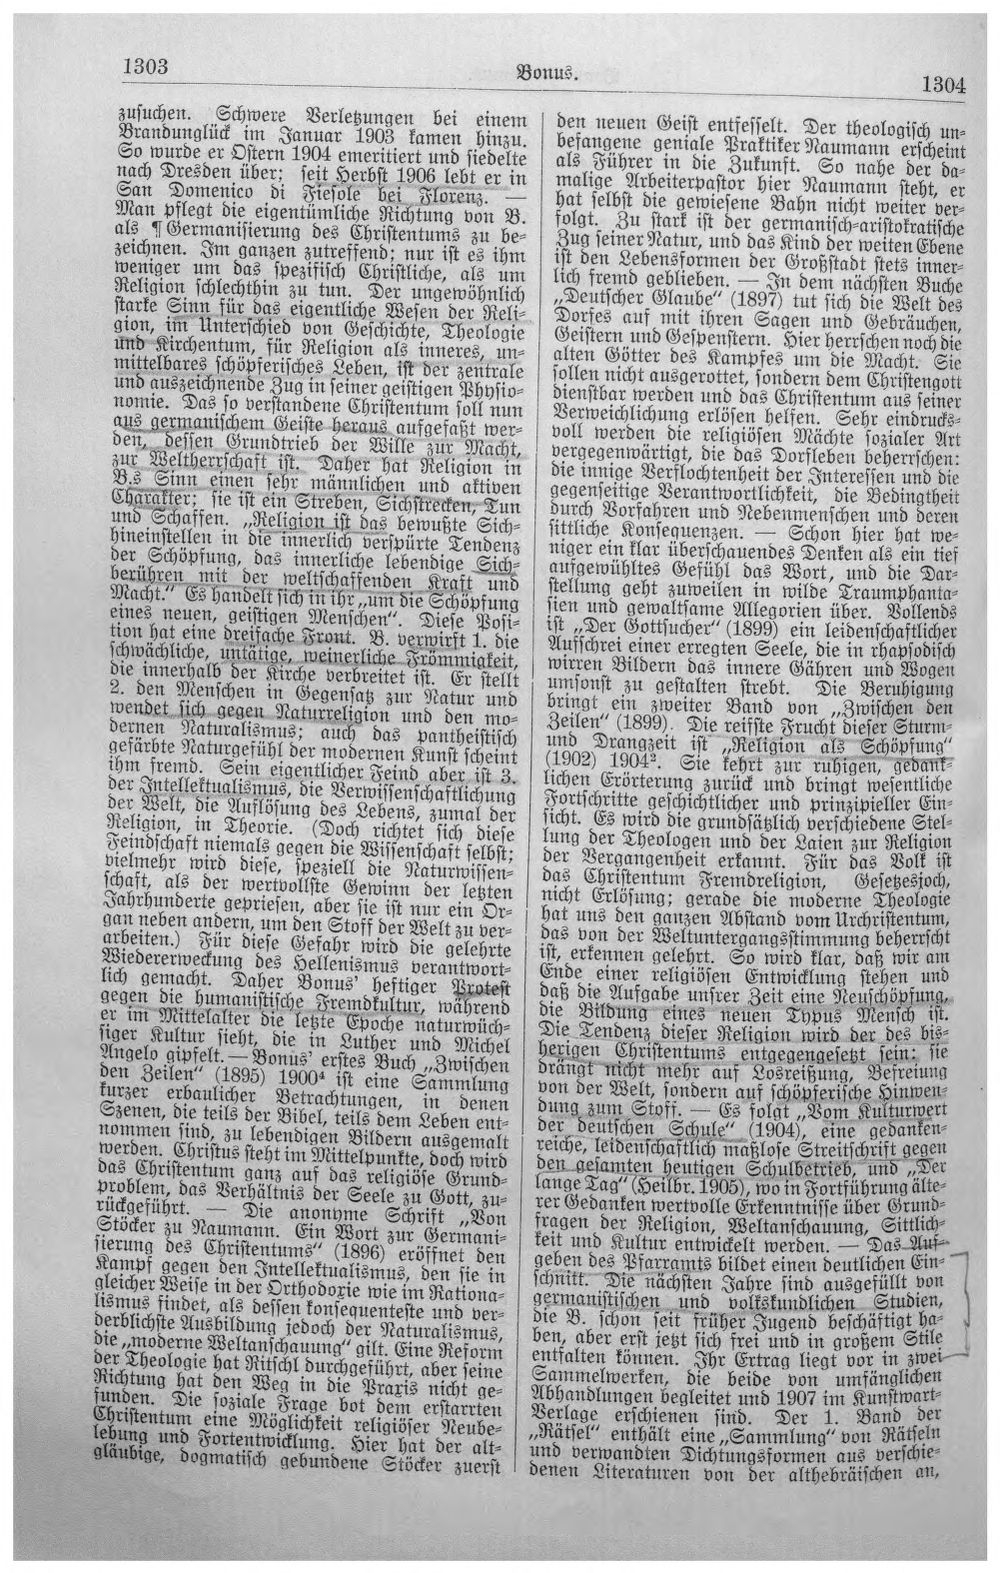 1303
Bonus.
1304
zusuchen. Schwere Verletzungen bei einem
Brandunglück im Januar 1903 kamen hinzu.
So wurde er Ostern 1904 emeritiert und siedelte
nach Dresden über; seit Herbst 1906 lebt er in
San Domenico di Fiesole bei Florenz. —
Man pflegt die eigentümliche Richtung von B.
als ¶ Germanisierung des Christentums zu be-
zeichnen. Im ganzen zutreffend; nur ist es ihm
weniger um das spezifisch Christliche, als um
Religion schlechthin zu tun. Der ungewöhnlich
starke Sinn für das eigentliche Wesen der Reli-
gion, im Unterschied von Geschichte, Theologie
und Kirchentum, für Religion als inneres, un-
mittelbares schöpferisches Leben, ist der zentrale
und auszeichnende Zug in seiner geistigen Physio-
nomie. Das so verstandene Christentum soll nun
aus germanischem Geiste heraus aufgefaßt wer-
den, dessen Grundtrieb der Wille zur Macht,
zur Weltherrschaft ist. Daher hat Religion in
B.s Sinn einen sehr männlichen und aktiven
Charakter; sie ist ein Streben, Sichstrecken, Tun
und Schaffen. „Religion ist das bewußte Sich-
hineinstellen in die innerlich verspürte Tendenz
der Schöpfung, das innerliche lebendige Sich-
berühren mit der weltschaffenden Kraft und
Macht.“ Es handelt sich in ihr „um die Schöpfung
eines neuen, geistigen Menschen“. Diese Posi-
tion hat eine dreifache Front. B. verwirft 1. die
schwächliche, untätige, weinerliche Frömmigkeit,
die innerhalb der Kirche verbreitet ist. Er stellt
2. den Menschen in Gegensatz zur Natur und
wendet sich gegen Naturreligion und den mo-
dernen Naturalismus; auch das pantheistisch
gefärbte Naturgefühl der modernen Kunst scheint
ihm fremd. Sein eigentlicher Feind aber ist 3.
der Intellektualismus, die Verwissenschaftlichung
der Welt, die Auflösung des Lebens, zumal der
Religion, in Theorie. (Doch richtet sich diese
Feindschaft niemals gegen die Wissenschaft selbst;
vielmehr wird diese, speziell die Naturwissen-
schaft, als der wertvollste Gewinn der letzten
Jahrhunderte gepriesen, aber sie ist nur ein Or-
gan neben andern, um den Stoff der Welt zu ver-
arbeiten.) Für diese Gefahr wird die gelehrte
Wiedererweckung des Hellenismus verantwort-
lich gemacht. Daher Bonus' heftiger Protest
gegen die humanistische Fremdkultur, während
er im Mittelalter die letzte Epoche naturwüch-
siger Kultur sieht, die in Luther und Michel
Angelo gipfelt. — Bonus' erstes Buch „Zwischen
den Zeilen“ (1895) 1900⁴ ist eine Sammlung
kurzer erbaulicher Betrachtungen, in denen
Szenen, die teils der Bibel, teils dem Leben ent-
nommen sind, zu lebendigen Bildern ausgemalt
werden. Christus steht im Mittelpunkte, doch wird
das Christentum ganz auf das religiöse Grund-
problem, das Verhältnis der Seele zu Gott, zu-
rückgeführt. — Die anonyme Schrift „Von
Stöcker zu Naumann. Ein Wort zur Germani-
sierung des Christentums“ (1896) eröffnet den
Kampf gegen den Intellektualismus, den sie in
gleicher Weise in der Orthodoxie wie im Rationa-
lismus findet, als dessen konsequenteste und ver-
derblichste Ausbildung jedoch der Naturalismus,
die „moderne Weltanschauung“ gilt. Eine Reform
der Theologie hat Ritschl durchgeführt, aber seine
Richtung hat den Weg in die Praxis nicht ge-
funden. Die soziale Frage bot dem erstarrten
Christentum eine Möglichkeit religiöser Neube-
lebung und Fortentwicklung. Hier hat der alt-
gläubige, dogmatisch gebundene Stöcker zuerst
den neuen Geist entfesselt. Der theologisch un-
befangene geniale Praktiker Naumann erscheint
als Führer in die Zukunft. So nahe der da-
malige Arbeiterpastor hier Naumann steht, er
hat selbst die gewiesene Bahn nicht weiter ver-
folgt. Zu stark ist der germanisch-aristokratische
Zug seiner Natur, und das Kind der weiten Ebene
ist den Lebensformen der Großstadt stets inner-
lich fremd geblieben. — In dem nächsten Buche
„Deutscher Glaube“ (1897) tut sich die Welt des
Dorfes auf mit ihren Sagen und Gebräuchen,
Geistern und Gespenstern. Hier herrschen noch die
alten Götter des Kampfes um die Macht. Sie
sollen nicht ausgerottet, sondern dem Christengott
dienstbar werden und das Christentum aus seiner
Verweichlichung erlösen helfen. Sehr eindrucks-
voll werden die religiösen Mächte sozialer Art
vergegenwärtigt, die das Dorfleben beherrschen:
die innige Verflochtenheit der Interessen und die
gegenseitige Verantwortlichkeit, die Bedingtheit
durch Vorfahren und Nebenmenschen und deren
sittliche Konsequenzen. — Schon hier hat we-
niger ein klar überschauendes Denken als ein tief
aufgewühltes Gefühl das Wort, und die Dar-
stellung geht zuweilen in wilde Traumphanta-
sien und gewaltsame Allegorien über. Vollends
ist „Der Gottsucher“ (1899) ein leidenschaftlicher
Aufschrei einer erregten Seele, die in rhapsodisch
wirren Bildern das innere Gähren und Wogen
umsonst zu gestalten strebt. Die Beruhigung
bringt ein zweiter Band von „Zwischen den
Zeilen“ (1899). Die reifste Frucht dieser Sturm-
und Drangzeit ist „Religion als Schöpfung“
(1902) 1904². Sie kehrt zur ruhigen, gedank-
lichen Erörterung zurück und bringt wesentliche
Fortschritte geschichtlicher und prinzipieller Ein-
sicht. Es wird die grundsätzlich verschiedene Stel-
lung der Theologen und der Laien zur Religion
der Vergangenheit erkannt. Für das Volk ist
das Christentum Fremdreligion, Gesetzesjoch,
nicht Erlösung; gerade die moderne Theologie
hat uns den ganzen Abstand vom Urchristentum,
das von der Weltuntergangsstimmung beherrscht
ist, erkennen gelehrt. So wird klar, daß wir am
Ende einer religiösen Entwicklung stehen und
daß die Aufgabe unsrer Zeit eine Neuschöpfung,
die Bildung eines neuen Typus Mensch ist.
Die Tendenz dieser Religion wird der des bis-
herigen Christentums entgegengesetzt sein: sie
drängt nicht mehr auf Losreißung, Befreiung
von der Welt, sondern auf schöpferische Hinwen-
dung zum Stoff. — Es folgt „Vom Kulturwert
der deutschen Schule“ (1904), eine gedanken-
reiche, leidenschaftlich maßlose Streitschrift gegen
den gesamten heutigen Schulbetrieb, und „Der
lange Tag“ (Heilbr. 1905), wo in Fortführung älte-
rer Gedanken wertvolle Erkenntnisse über Grund-
fragen der Religion, Weltanschauung, Sittlich-
keit und Kultur entwickelt werden. — Das Auf-
geben des Pfarramts bildet einen deutlichen Ein-
schnitt. Die nächsten Jahre sind ausgefüllt von
germanistischen und volkskundlichen Studien,
die B. schon seit früher Jugend beschäftigt ha-
ben, aber erst jetzt sich frei und in großem Stile
entfalten können. Ihr Ertrag liegt vor in zwei
Sammelwerken, die beide von umfänglichen
Abhandlungen begleitet und 1907 im Kunstwart-
Verlage erschienen sind. Der 1. Band der
„Rätsel“ enthält eine „Sammlung“ von Rätseln
und verwandten Dichtungsformen aus verschie-
denen Literaturen von der althebräischen an,